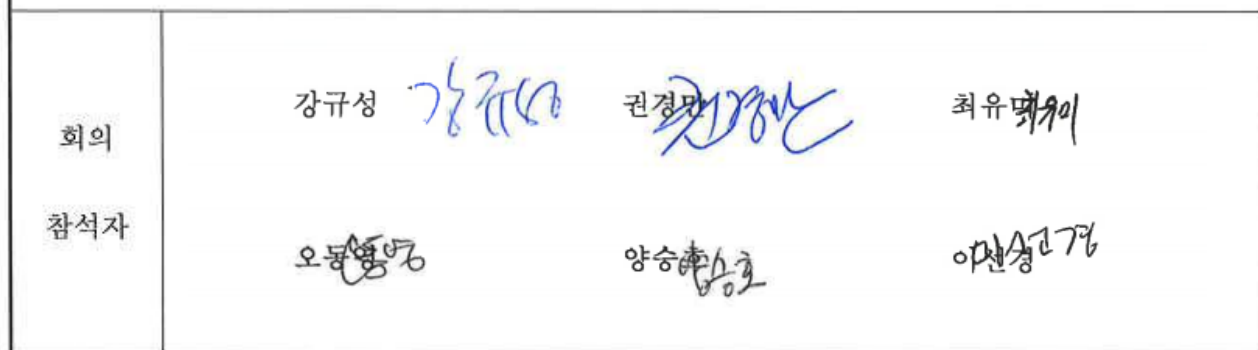 회의
참석자
강규성 강규성 권경만 권경만 최유미 최유미
오동영 오동영 양승호 양승호 이선경 이선경